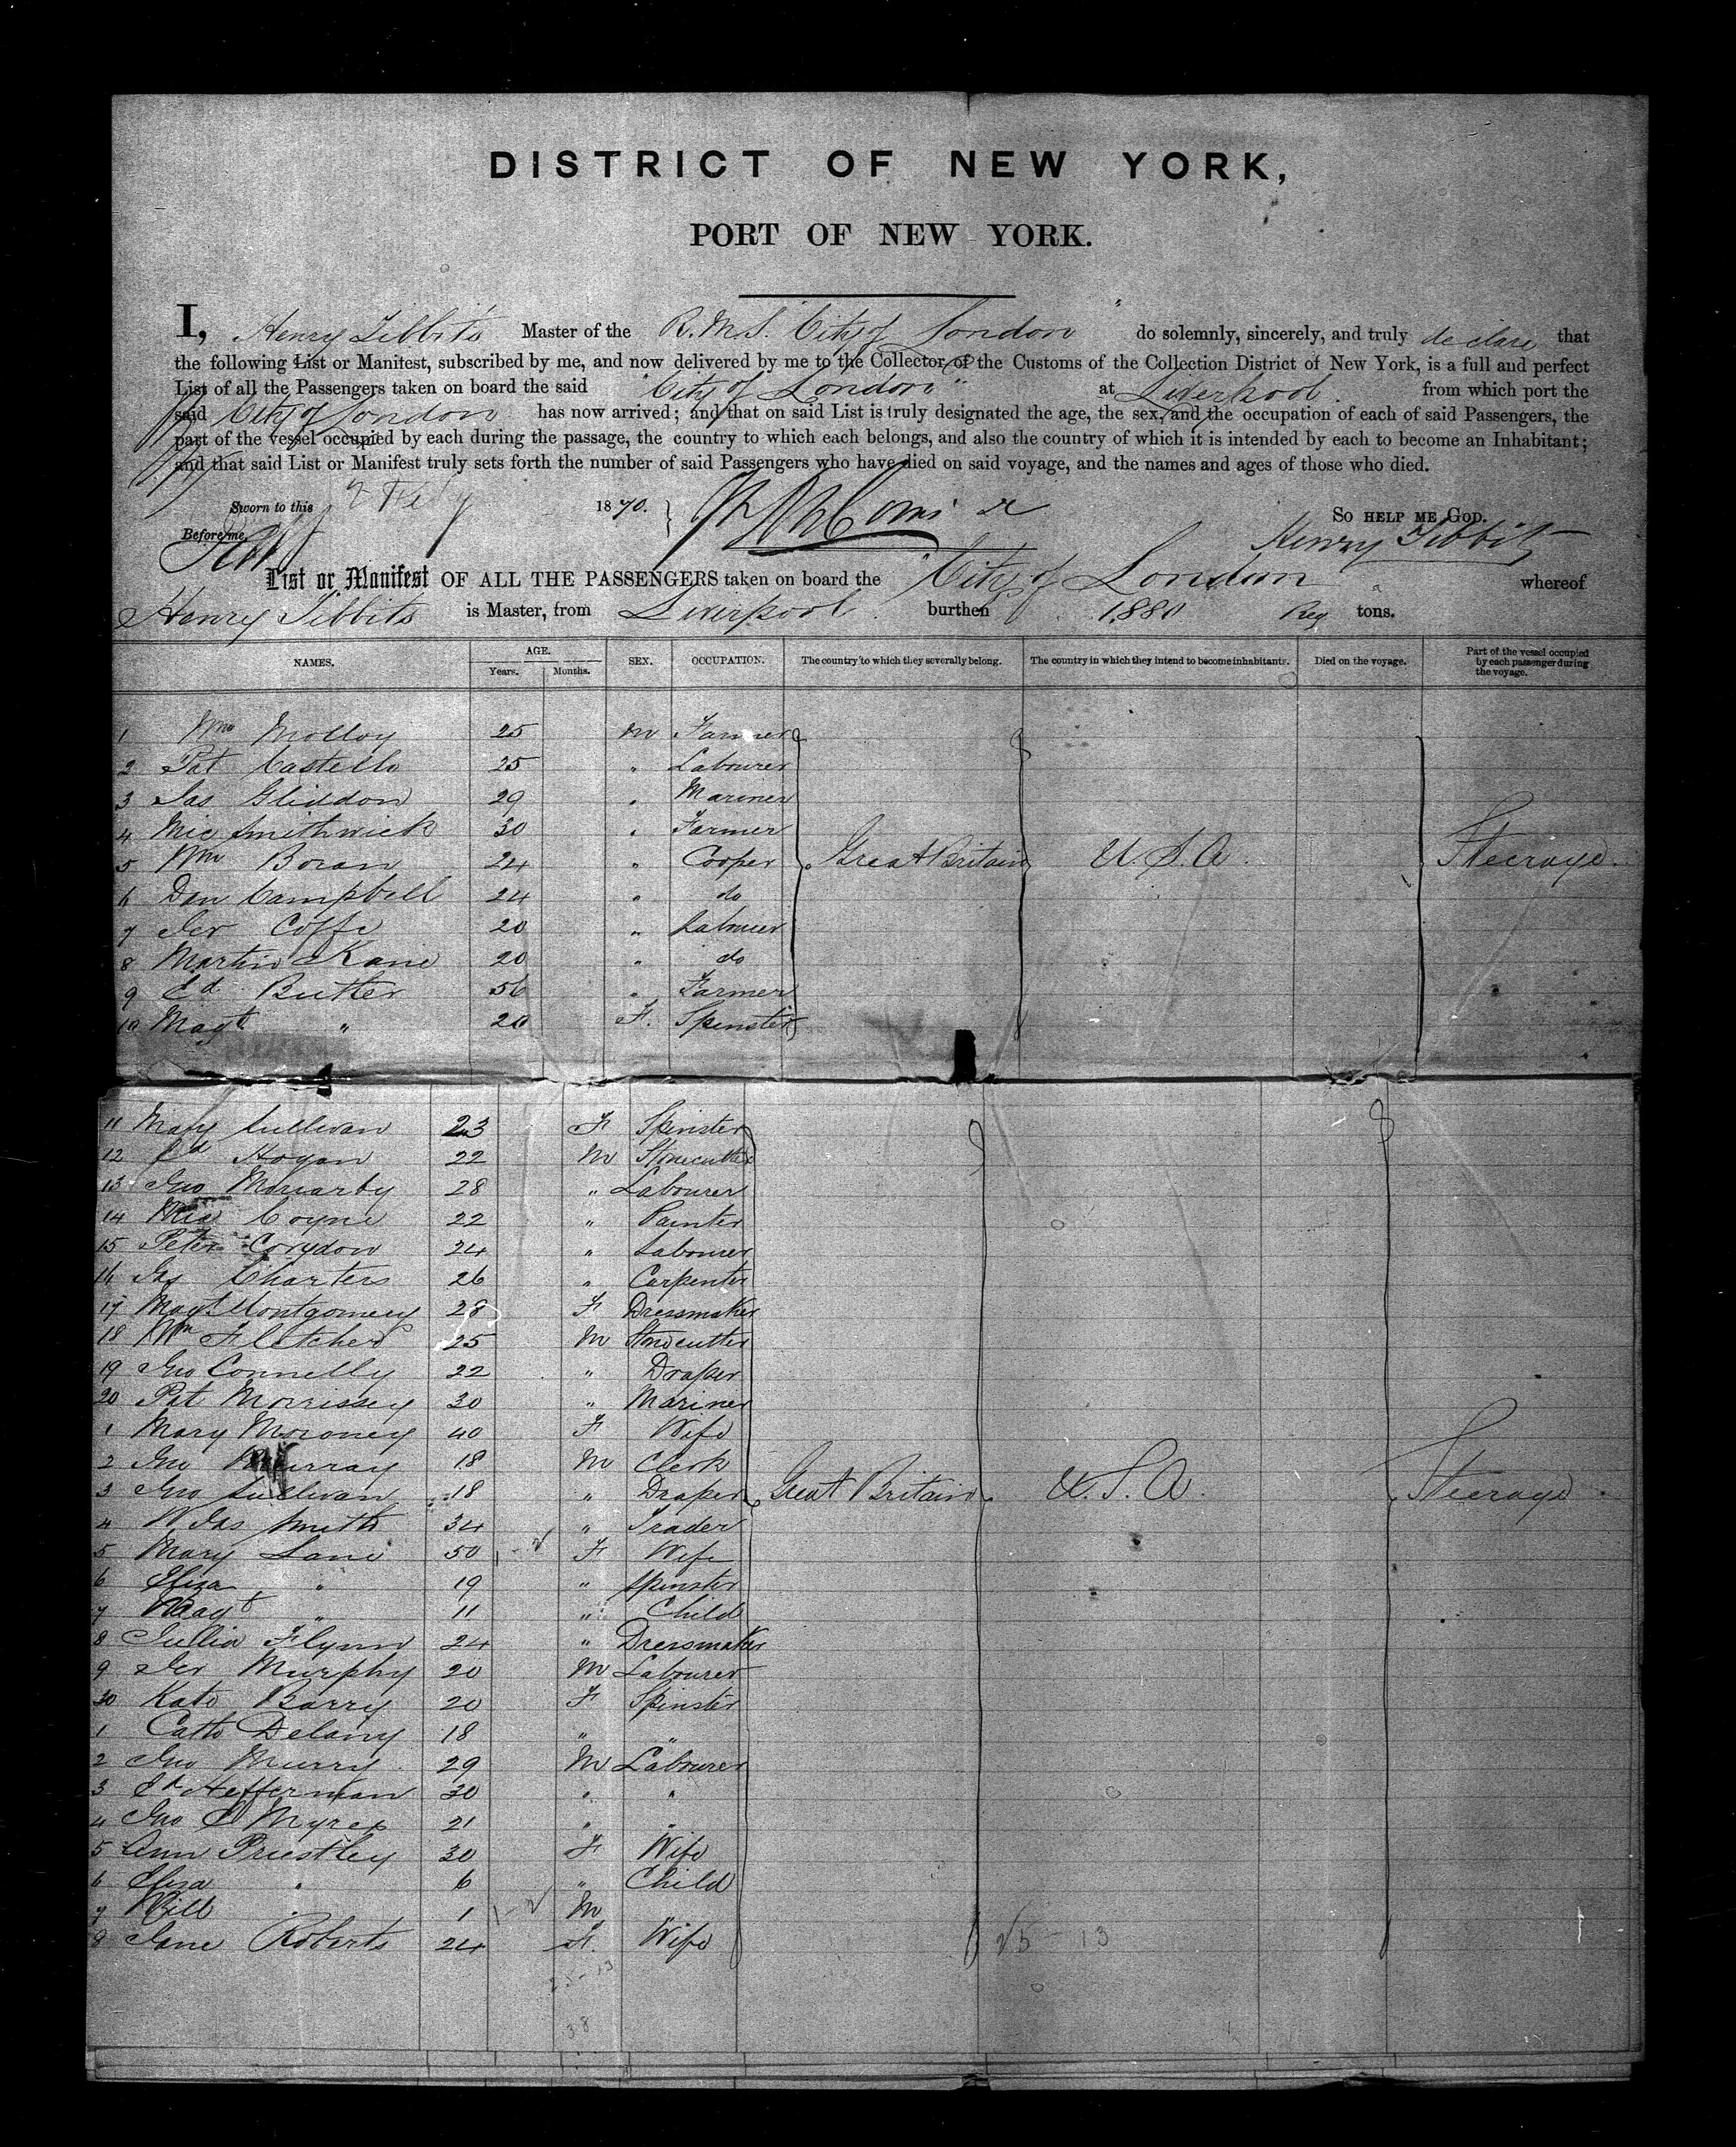 DISTRICT OF NEW YORK,
PORT OF NEW YORK.
I, Henry Tibbits Master of the R.M.S. "City of London" do solemnly, sincerely, and truly declare that
the following List or Manifest, subscribed by me, and now delivered by me to the Collector of the Customs of the Collection District of New York, is a full and perfect
List of all the Passengers taken on board the said "City of London" at Liverpool. from which port the
said City of London has now arrived; and that on said List is truly designated the age, the sex, and the occupation of each of said Passengers, the
part of the vessel occupied by each during the passage, the country to which each belongs, and also the country of which it is intended by each to become an Inhabitant;
and that said List or Manifest truly sets forth the number of said Passengers who have died on said voyage, and the names and ages of those who died.
Sworn to this 1870. So HELP ME GOD.
Before me, Henry Tibbits
List or Manifest OF ALL THE PASSENGERS taken on board the "City of London" whereof
Henry Tibbits is Master, from Liverpool burthen 1880 Reg tons.
NAMES. AGE. Years. Months. SEX. OCCUPATION. The country to which they severally belong. The country in which they intend to become inhabitants. Died on the voyage. Part of the vessel occupied by each passenger during the voyage.
1 Wm Molloy 25 M Farmer
2 Pat Castello 25 " Labourer
3 Jas Gliddon 29 " Mariner
4 Mic Smithwick 30 " Farmer
5 Wm Boran 24 " Cooper Great Britain U.S.A. Steerage.
6 Dan Campbell 24 " do
7 Jer Coffe 20 " Labourer
8 Martin Kane 20 " do
9 Ed Butler 56 " Farmer
10 Magt " 20 F. Spinster
11 Mary Sullivan 23 F Spinster
12 Ed Hogan 22 M Stonecutter
13 Jno Moriarty 28 " Labourer
14 Mic Coyne 22 " Painter
15 Peter Corydon 24 " Labourer
16 Jas Charters 26 " Carpenter
17 Magt Montgomery 28 F Dressmaker
18 Wm Fletcher 25 M Stonecutter
19 Jno Connelly 22 " Draper
20 Pat Morrissey 30 " Mariner
1 Mary Moroney 40 F Wife
2 Jno Murray 18 M Clerk
3 Jno Sullivan 18 " Draper Great Britain U.S.A. Steerage.
4 W Jas Smith 34 " Trader
5 Mary Lane 50 F Wife
6 Eliza " 19 " Spinster
7 Magt " 11 " Child
8 Jullia Flynn 24 " Dressmaker
9 Jer Murphy 20 M Labourer
30 Kate Barry 20 F Spinster
1 Cath Delany 18 " "
2 Jno Murry 29 M Labourer
3 Ed Hefferman 30 " "
4 Jno 21 " "
5 Ann Priestley 30 F Wife
6 Eliza " 6 " Child
7 Will " 1 M "
8 Jane Roberts 24 F. Wife
25 - 13
25 - 13
38